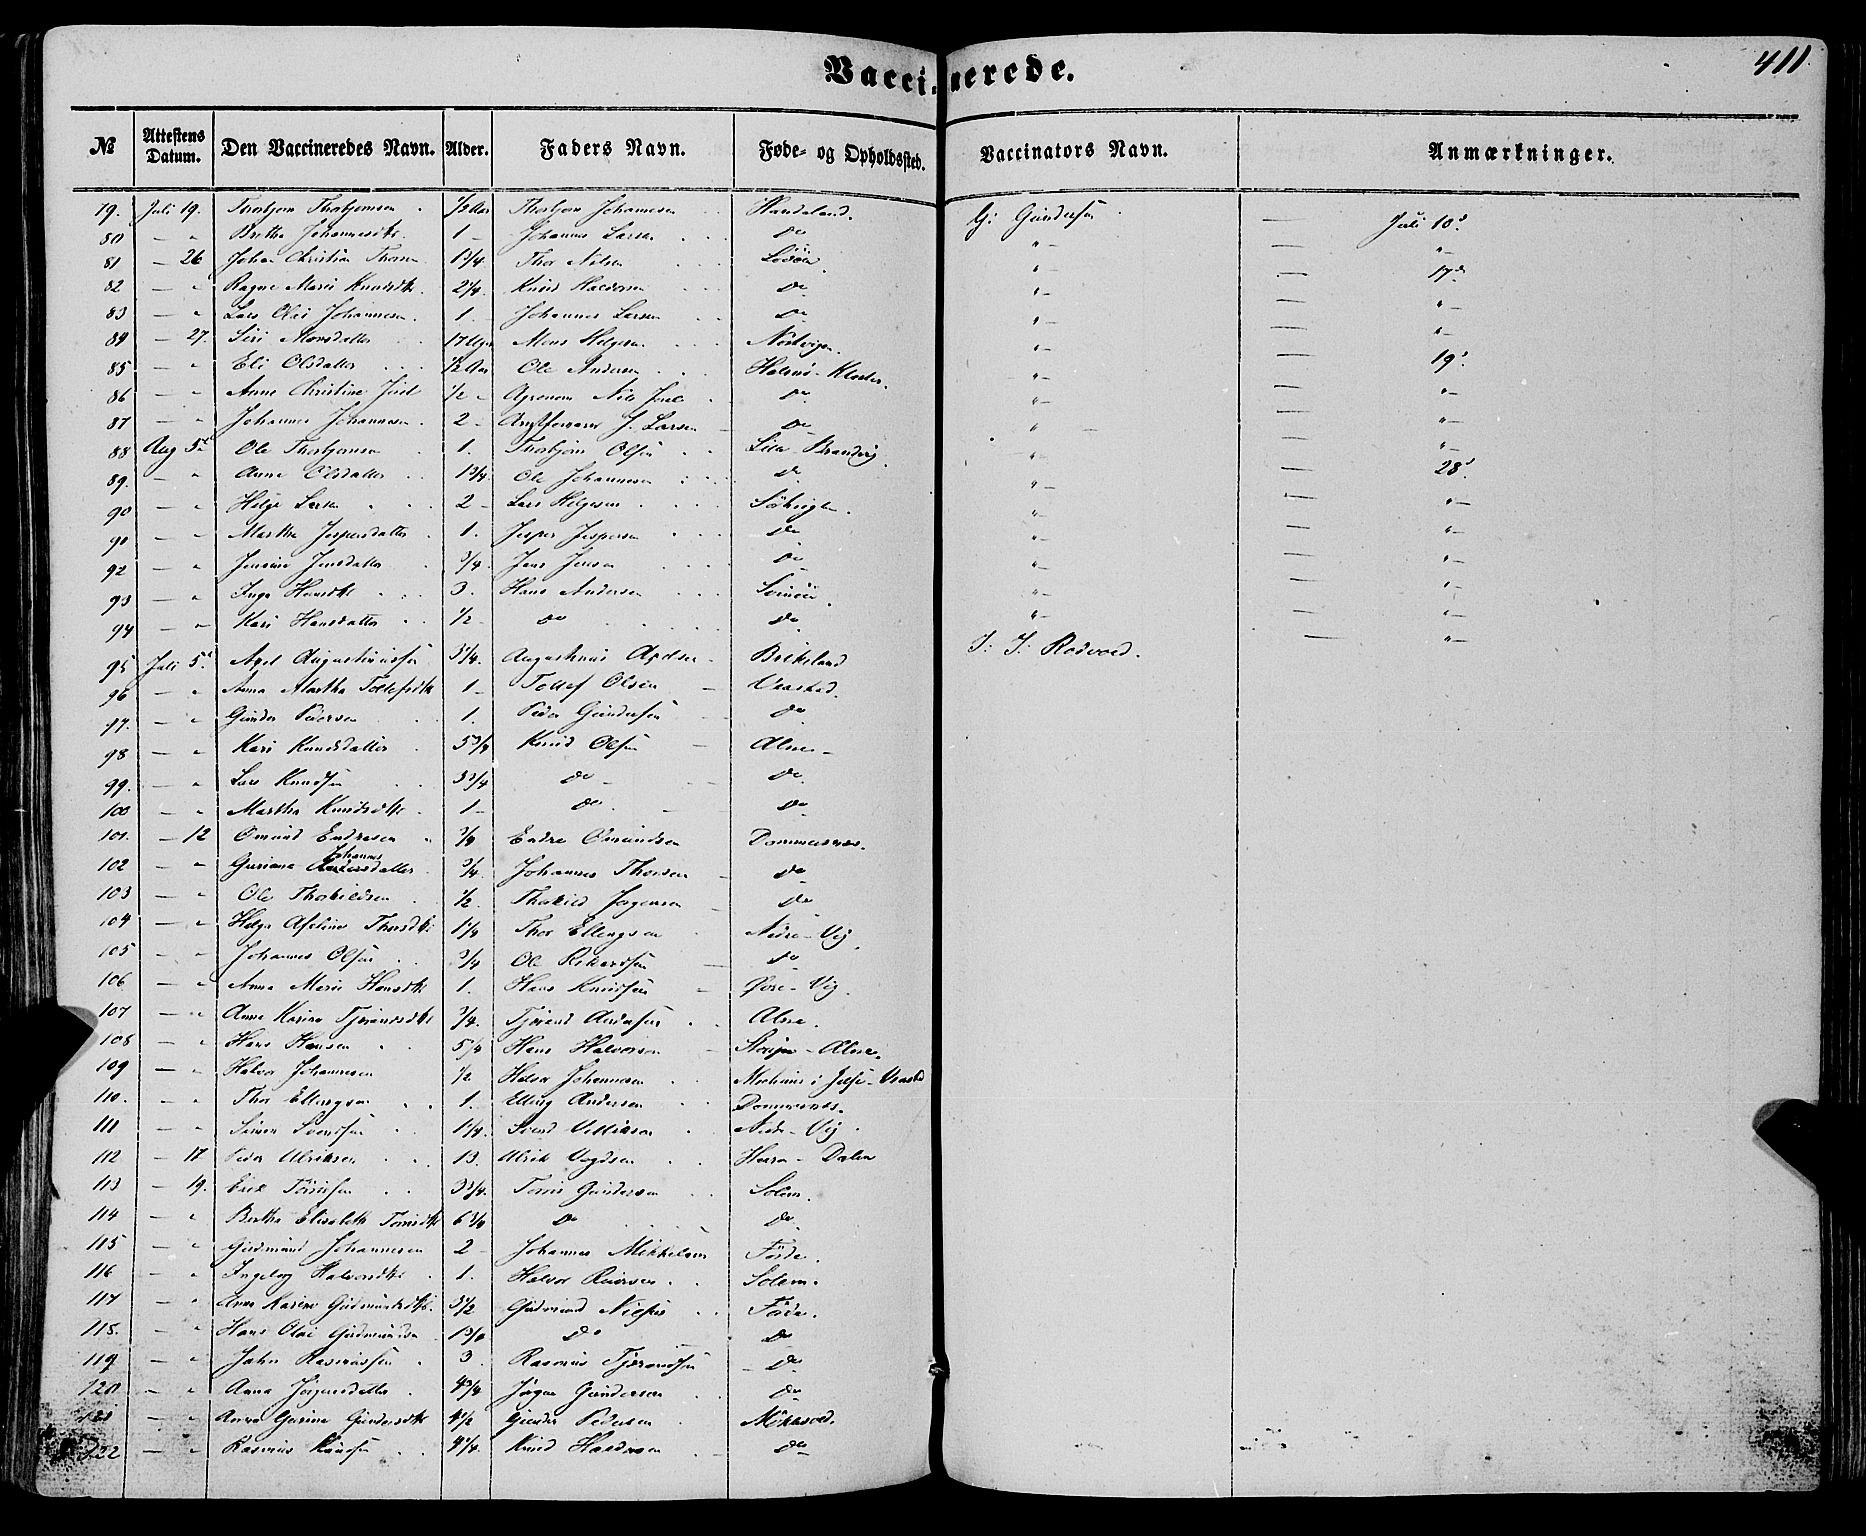 Vaccinerede.
411.
№ Attestens Datum. Den Vaccineredes Navn. Alder. Faders Navn. Føde- og Opholdssted. Vaccinators Navn. Anmærkninger.
79. Juli 19. Thorbjørn Thorbjørnsen 1/2 Aar Thorbjørn Johannesen G: Gundersen — Juli 10d
80 — " Brita Johannesdtr. 1 — Johannes Larsen Do "— — "—
81 — 26 Johan Christian Thorsen 1 3/4. Thor Nilsen "— — 17d
82 — " Ragne Marie Knudsdtr. 2 1/4. Knud Halvorsen Do "— — "—
83 — " Lars Olai Johannesen. 1. Johannes Larsen Do "— — "—
84 — 27. Siri Monsdatter 17 Uger Mons Helgesen "— — 19d
85 — " Eli Olsdatter 1/2 Aar Ole Andersen Halsnø-Kloster. "— — "—
86 — " Anne Christine Juel 1/2 — Agronom Nils Juel Do "— — "—
87 — " Johannes Johannesen. 2 — J. Larsen — Do "— — "—
88 Aug 5d Ole Thorbjørnsen 1. Thorbjørn Olsen "— — 28d
89. — " Anne Olsdatter 1 3/4. Ole Johannesen Do "— — "—
90 — " Helge Larsen 2 — Lars Helgesen "— — "—
90 — " Martha Jespersdatter 1. Jesper Jespersen Do "— — "—
92 — " Jensine Jensdatter 3/4. Jens Jensen Do "— — "—
93 — " Inga Hansdtr. 3. Hans Andersen "— — "—
94 — " Kari Hansdatter 1/2 Do Do "— — "—
95 Juli 5d Axel Augustinussen 3 1/4. Augustinus Axelsen — Birkeland I: I: Rødvold.
96 — " Anna Martha Tollefsdtr 1 — Tollef Olsen — Vaastad.
97. — " Gunder Pedersen 1. Peder Gundersen — Do
98 — " Kari Knudsdatter 5 3/4 Knud Olsen — Alne —
99. — " Lars Knudsen 3 3/4 Do — Do
100 — " Martha Knudsdtr. 1 — Do — Do
101. — 12 Omund Endresen 3/4 Endre Omundsen Dommersnes.
102 — " Guriane Johannesdatter 3/4. Johannes Thorsen — Do
103 — " Ole Thorkildsen 1/2. Thorkild Jørgensen — Do
104 — " Helga Thorsdtr 1 1/4 Thor Ellingsen Nedre-Vig
105 — " Johannes Olsen 3/4 Ole Rikardsen — Do
106 — " Anna Marie Hansdtr 1. Hans Knudsen — Øvre-Vig.
107 — " Anne Karine Tjørandsdtr 3/4. Tjørand Andersen Alne.
108 — " Hans Hansen 5 1/4 Hans Halvorsen — Alne.
109 — " Halvor Johannesen 1/2 Halvor Johannesen
110. — " Thor Ellingsen 1. Elling Andersen Dommersnes.
111 — " Simon Svendsen 1 1/4. Svend Nedre-Vig.
112 — 17 Peder Ulriksen 13. Ulrik
113 — 19. Erik Tønnesen 3 3/4. Tønnes Gundersen Solem.
114 — " Bertha Elisabeth Tønnesdtr 6 3/4 Do Do
115 — " Gudmund Johannesen 2 — Johannes Mikkelsen Førde.
116 — " Ingeborg Halvorsdtr. 1. Halvor Solem.
117 — " Anne Karine Gudmundsdtr. 3 1/2 Gudmund Nielsen Førde.
118. — " Hans Olai Gudmundsen 1 3/4 Do Do
119 — " John Rasmussen 3. Rasmus Tjørandsen — Do
120 — " Anna Jørgensdatter 4 3/4 Jørgen Gundersen Do
121 — " Anna Gurine Gundersdtr 4 1/2 Gunder Pedersen Miklevold.
122 — " Rasmus Knudsen 4 1/4. Knud Halvorsen — Do